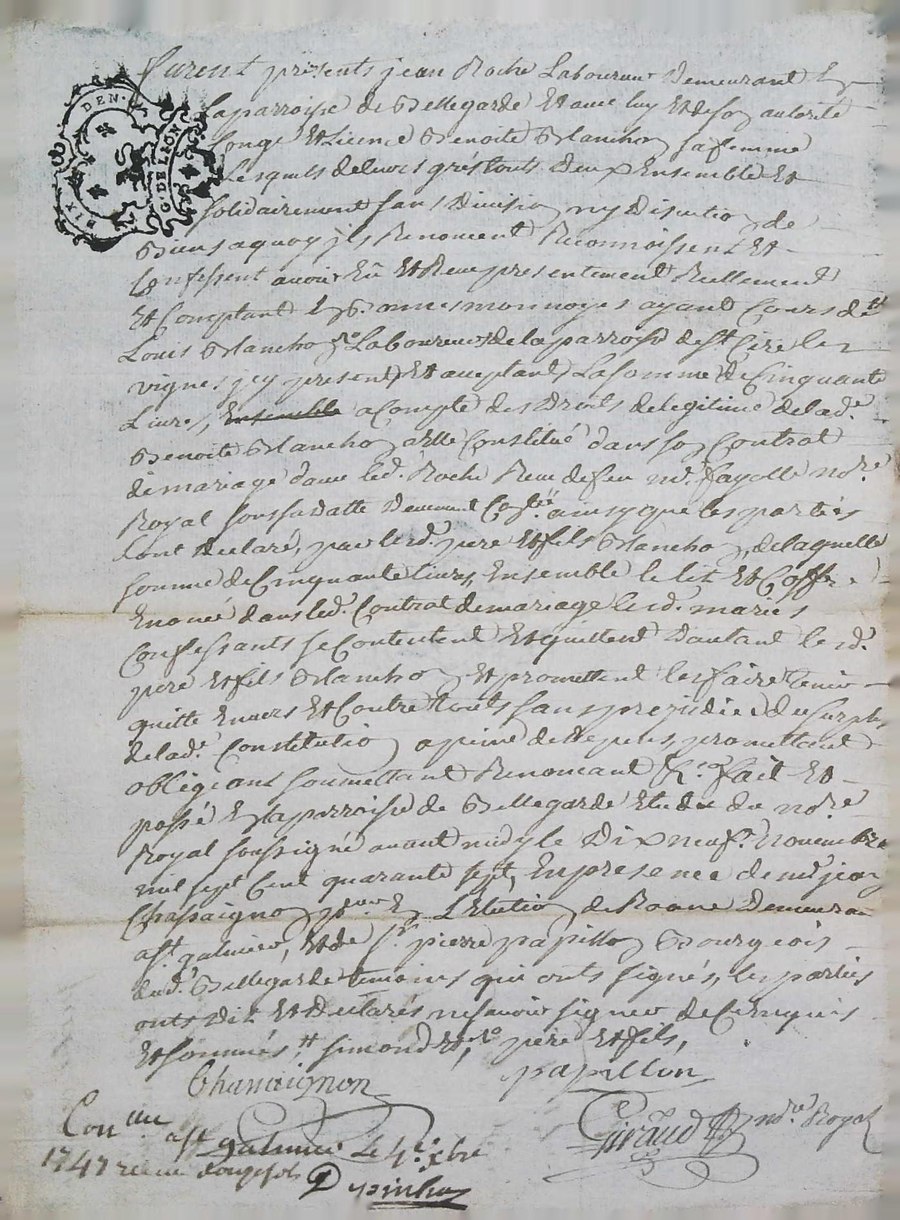 DIX DEN.
G. DE LION
furent présents jean Roche Laboureur demeurant En
laparroisse de Bellegarde Et avec luy Et de son autorité
Congé Et Licence Benoite Blanchon sa femme
Lesquels de leurs grés touts deux Ensemble Et
solidairement sans division ny discution de
Biens aquoy ils Renoncent Reconnoissent Et
Confessent avoir Eû Et Receu presentement Reellement
Et Comptant En Bonnes monnoyes ayant Cours de
Louis Blanchon Laboureur de la parroisse de st Cire les
vignes jcy present Et acceptant La somme de Cinquante
Livres, Ensemble a Compte des Droits de legitime de lad.e
Benoite Blanchon a Elle Constitué dans son Contrat
de mariage d'avec led. Roche Receu de feu me. fayolle nore
Royal sous sa datte deument ainsy que les parties
L'ont declaré, par lesd. pere Et fils Blanchon, de laquelle
somme de Cinquante livres, Ensemble le lit Et Coffre
Enoncé dans led. Contrat de mariage lesd. mariés
Confessants se Contentent Et quittent d'autant lesd.
pere Et fils Blanchon Et promettent les faire tenir
quitte Envers Et Contre touts sans prejudice du surplus
de lad.e Constitution a peine de depens, promettant
obligeant soumettant Renoncant &c. fait Et
passé En la parroisse de Bellegarde Etude du nore
Royal soussigné avant midy le Dix neufe. Novembre
mil sept Cent quarante sept, En presence de me jean
Chassaignon En L'Election de Roane demeurant
a st. galmier, Et de sr. pierre papillon Bourgeois
dud. Bellegarde temoins qui onts signés, les parties
onts Dit Et declarés ne scavoir signer de ce Enquis
Et sommés, simond Et, pere Et fils,
Chassaignon papillon
Giraud nore Royal
Conllé a st galmier Le 4e. xbre
1747 receu douze sols